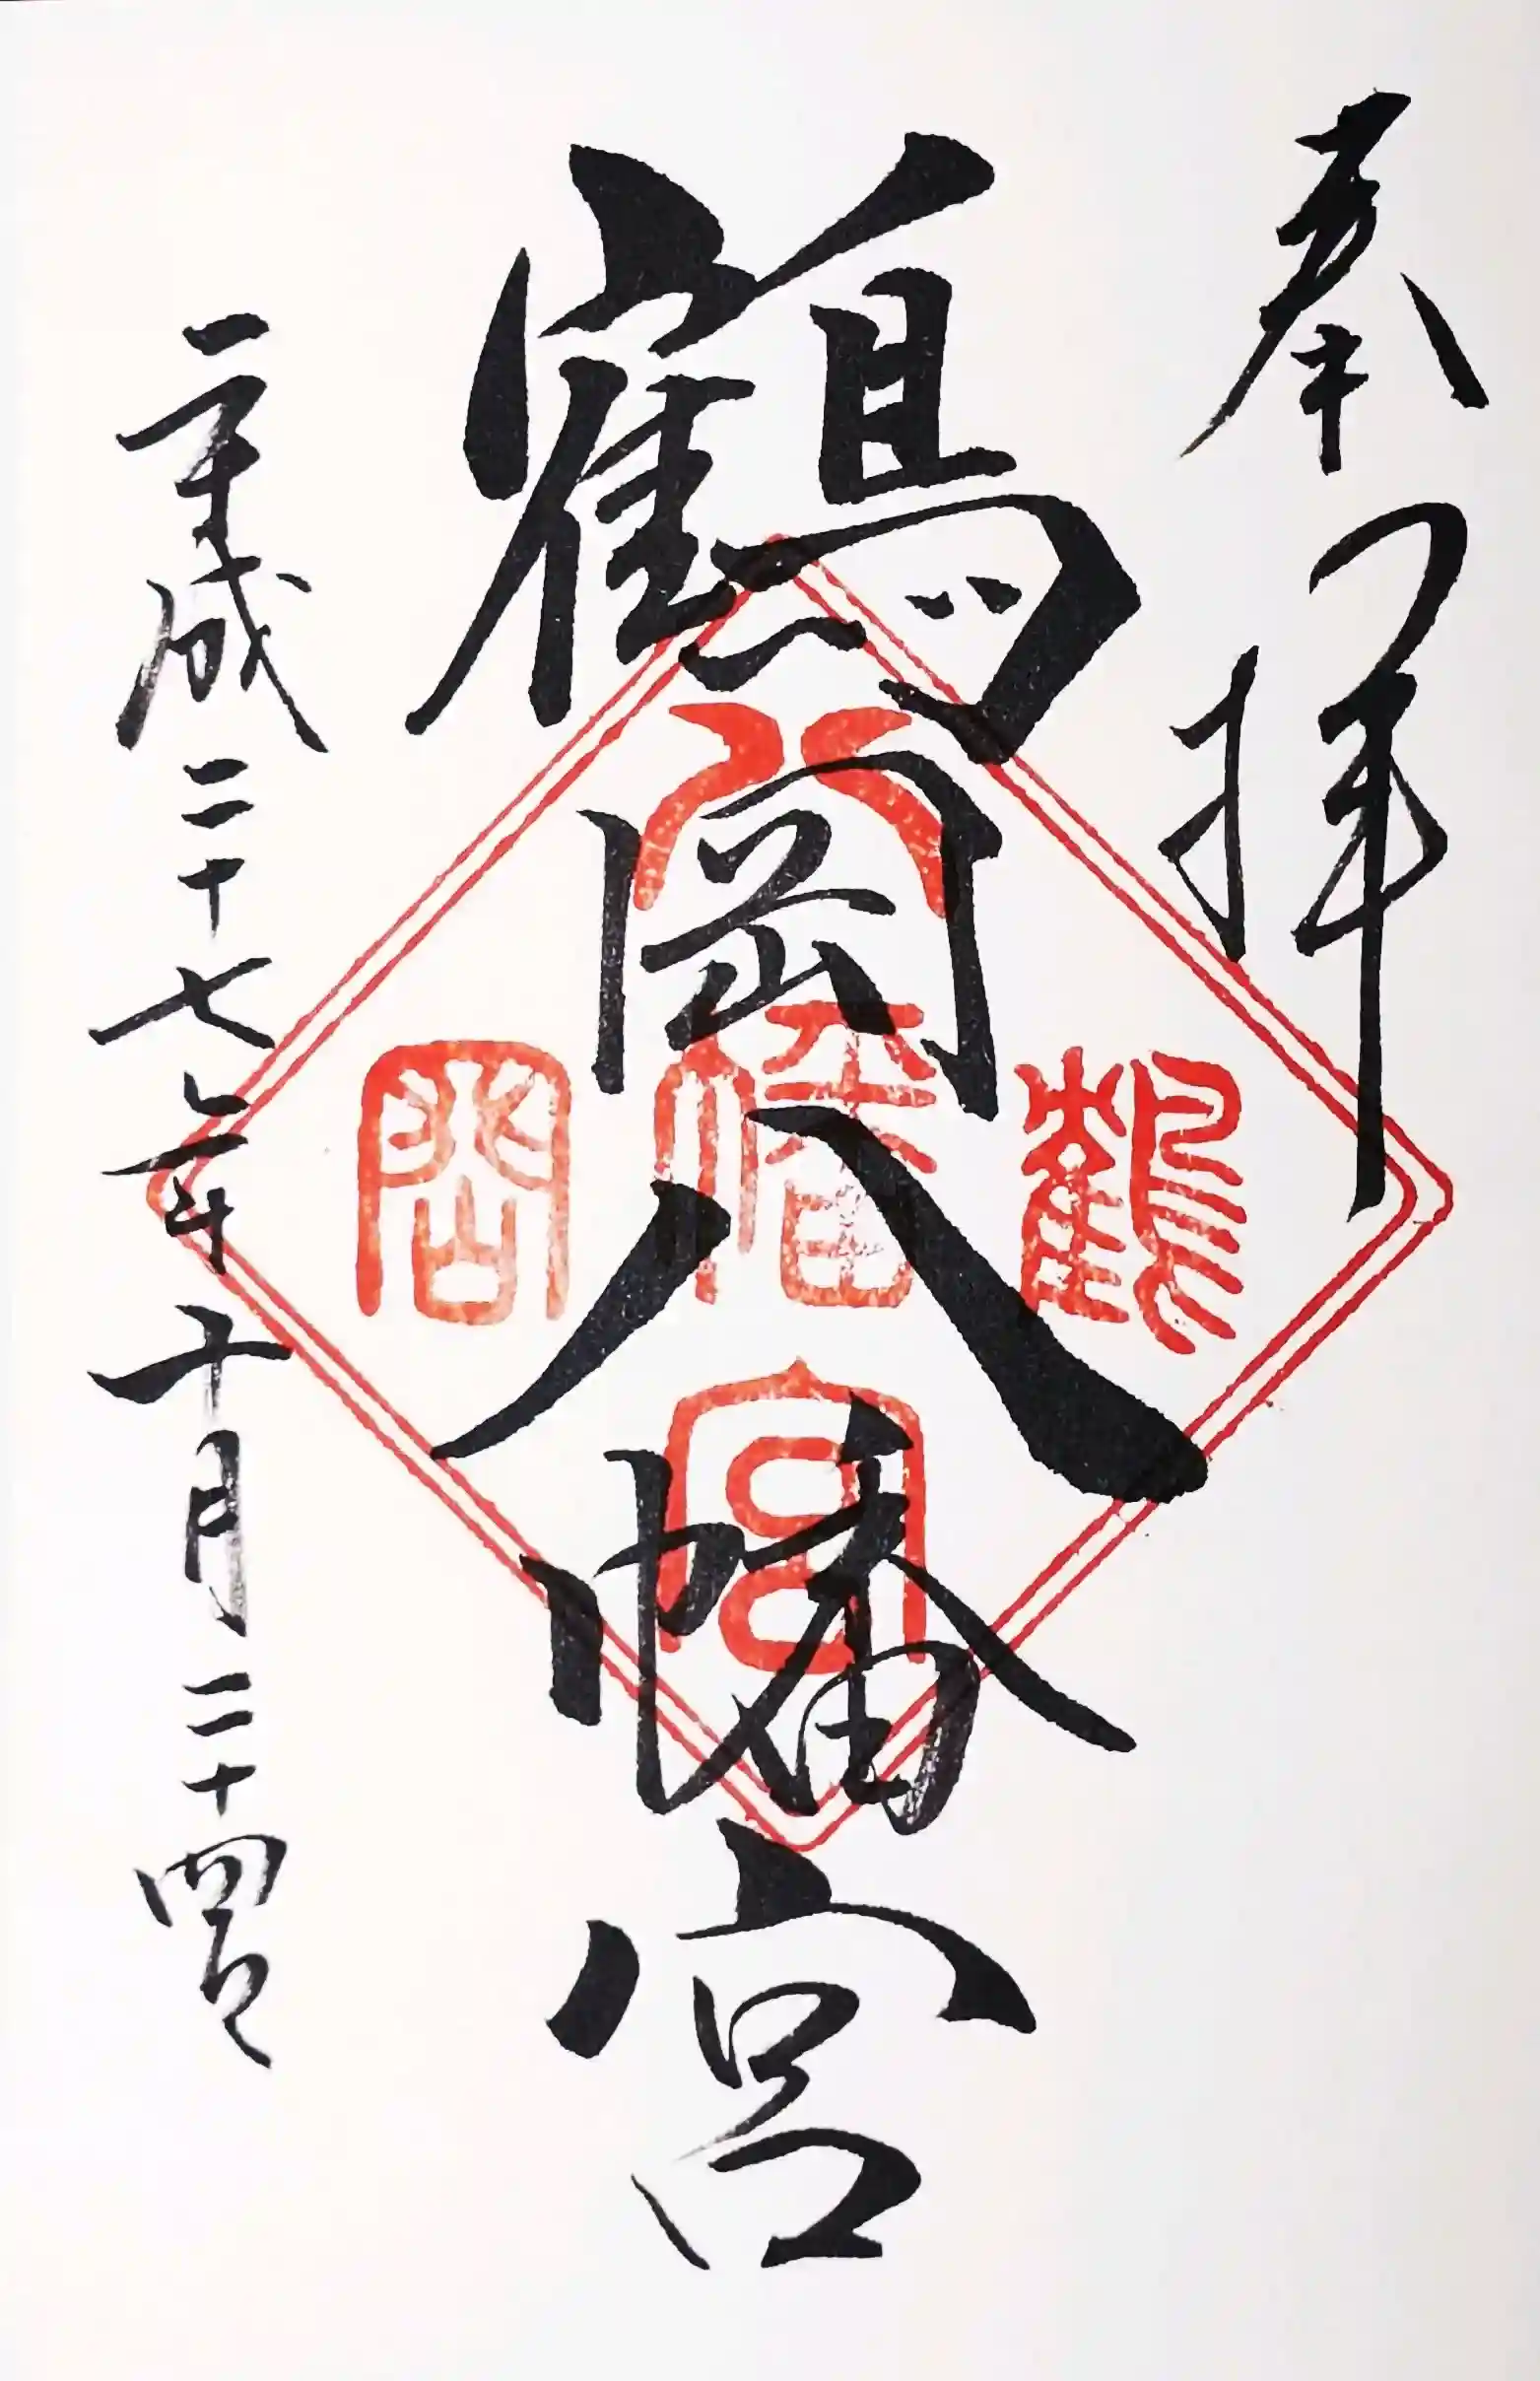 奉拝
鶴岡八幡宮
平成二十七年十月二十四日
八
鶴幡岡
宮